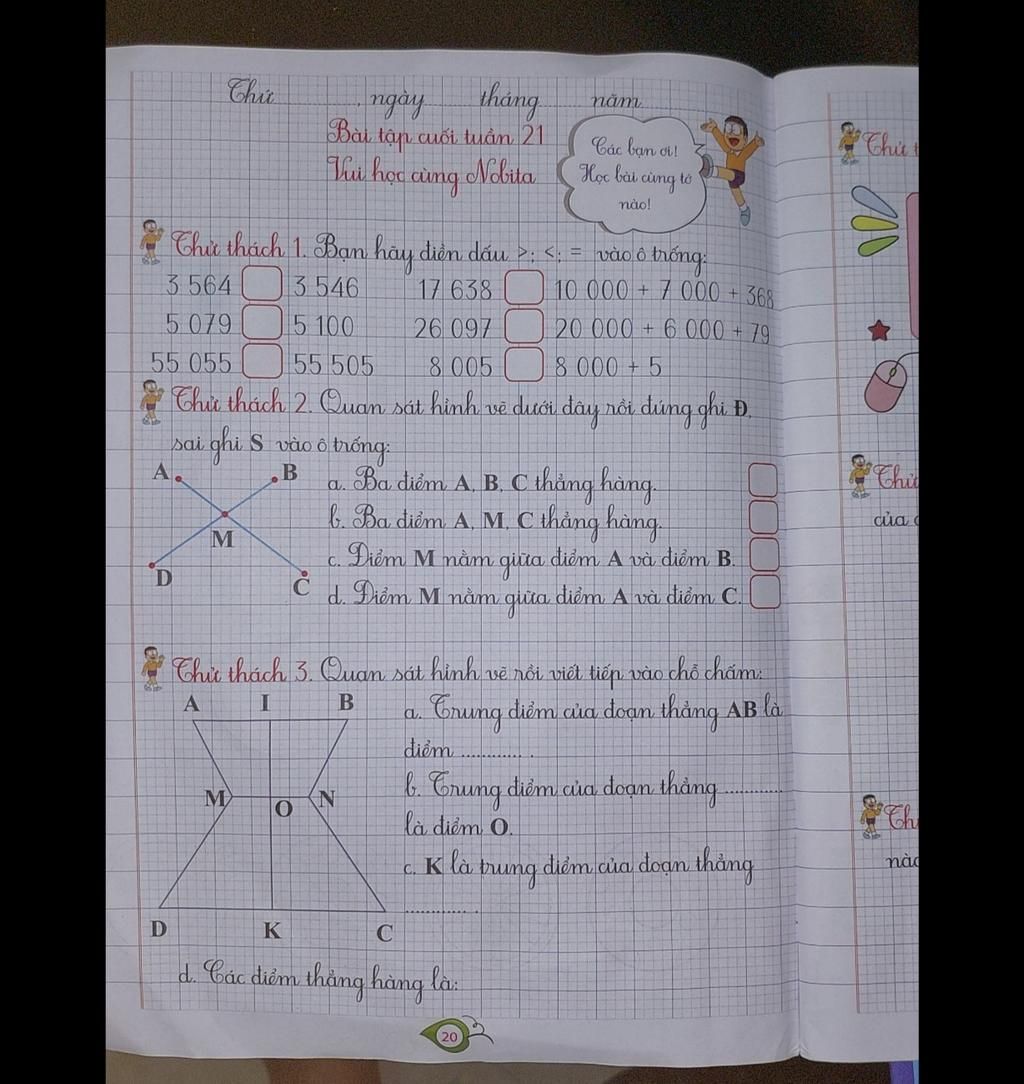 Thứ ngày tháng năm
Bài tập cuối tuần 21
Vui học cùng Nobita
Các bạn ơi!
Học bài cùng tớ
nào!
Thử thách 1. Bạn hãy điền dấu >; <; = vào ô trống:
3 564 3 546 17 638 10 000 + 7 000 + 368
5 079 5 100 26 097 20 000 + 6 000 + 79
55 055 55 505 8 005 8 000 + 5
Thử thách 2. Quan sát hình vẽ dưới đây rồi đúng ghi Đ,
sai ghi S vào ô trống:
A B
M
D C
a. Ba điểm A, B, C thẳng hàng.
b. Ba điểm A, M, C thẳng hàng.
c. Điểm M nằm giữa điểm A và điểm B.
d. Điểm M nằm giữa điểm A và điểm C.
Thử thách 3. Quan sát hình vẽ rồi viết tiếp vào chỗ chấm:
A I B
M O N
D K C
a. Trung điểm của đoạn thẳng AB là
điểm ............ .
b. Trung điểm của đoạn thẳng ............
là điểm O.
c. K là trung điểm của đoạn thẳng
............ .
d. Các điểm thẳng hàng là:
20
của
nào